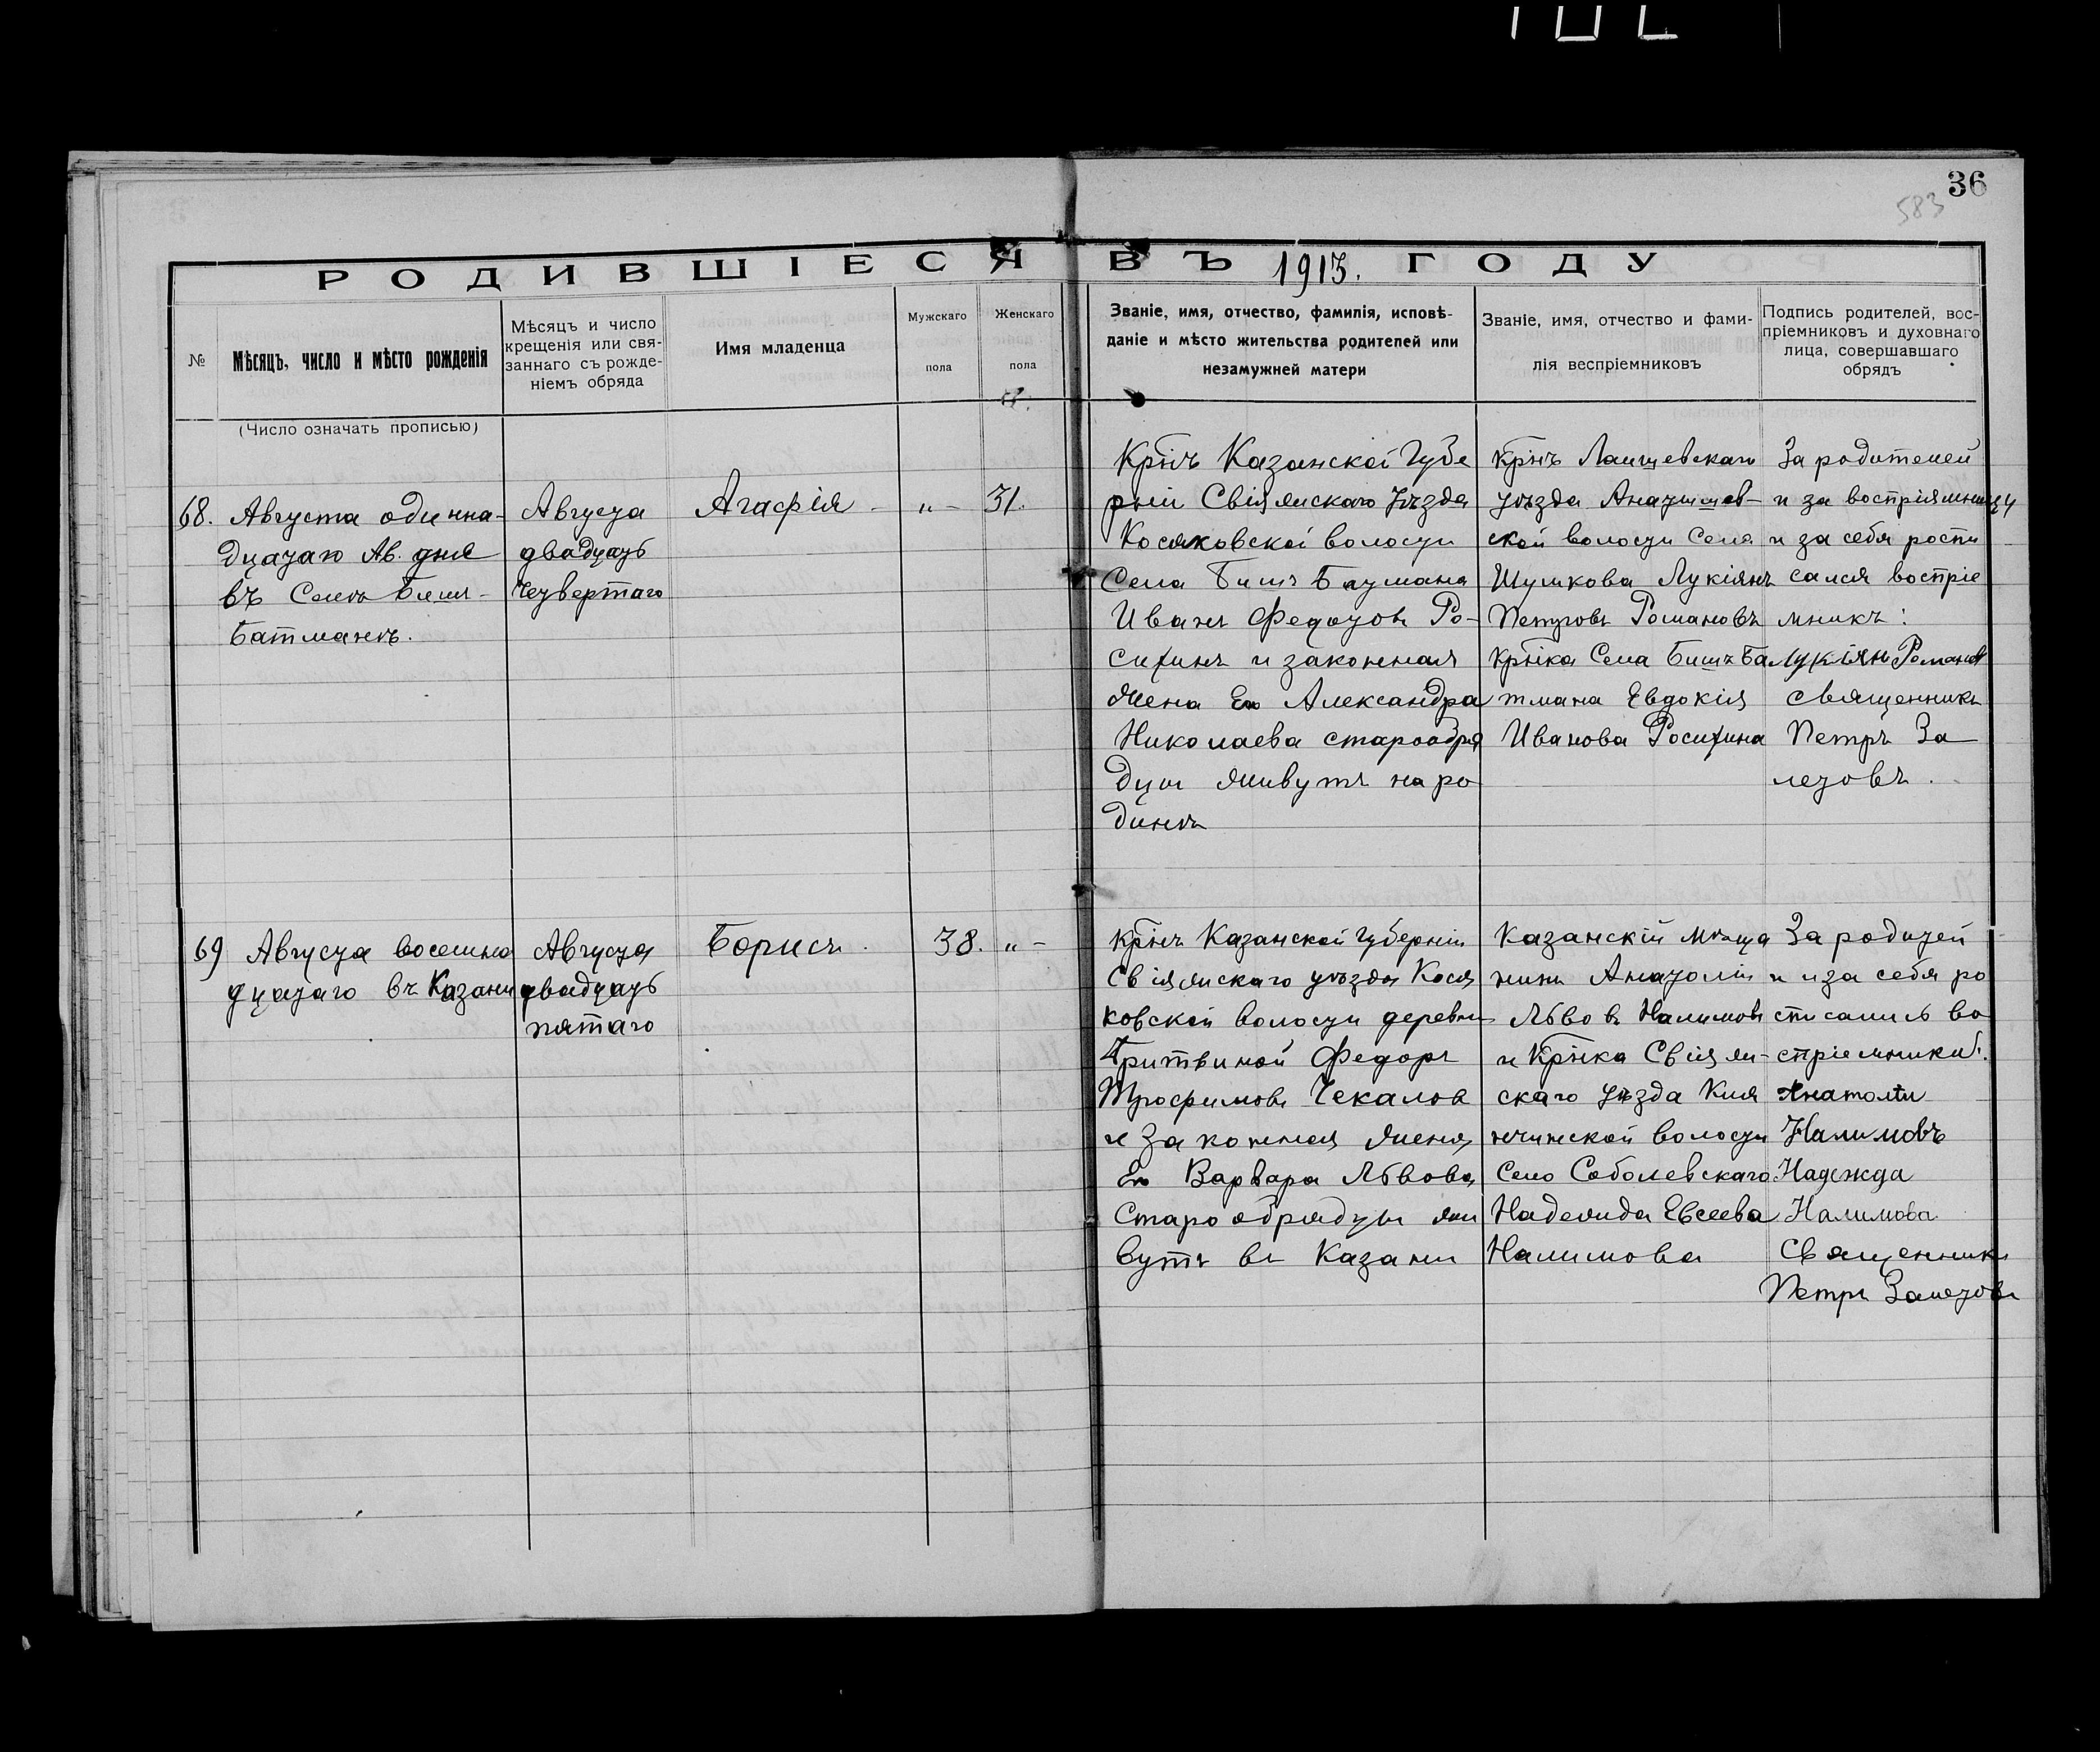 36
583
РОДИВШІЕСЯ ВЪ 1913. ГОДУ
№
Мѣсяцъ, число и мѣсто рожденія
(Число означать прописью)
Мѣсяцъ и число
крещенія или свя-
заннаго съ рожде-
ніемъ обряда
Имя младенца
Мужскаго
пола
Женскаго
пола
Званіе, имя, отчество, фамилія, исповѣ-
даніе и мѣсто жительства родителей или
незамужней матери
Званіе, имя, отчество и фами-
лія веспріемниковъ
Подпись родителей, вос-
пріемниковъ и духовнаго
лица, совершавшаго
обрядъ
68.
Августа одинна-
дцатаго Ав. дня
въ Селѣ Бишъ-
Батманѣ.
Августа
двадцать
четвертаго
Агафія
„ –
31.
Крнъ Казанской Губе
рніи Свіяжскаго Уѣзда
Косяковской волости
Села Бишъ Батмана
Иванъ Федотовъ Ро-
сихинъ и законная
жена Его Александра
Николаева старообря
дцы живутъ на ро
динѣ
Крнъ Лаишевскаго
уѣзда Анатышев-
ской волости Села
Шумкова Лукіянъ
Петровъ Романовъ
крнка Села Бишъ Ба
тмана Евдокія
Иванова Росихина
За родителей
и за воспріямницу
и за себя роспи
сался воспріе
мникъ:
Лукіян Романов
священникъ
Петръ За
летовъ.
69
Августа восемна
дцатаго въ Казани
Августа
двадцать
пятаго
Борисъ.
38.
„ –
Крнъ Казанской Губерніи
Свіяжскаго уѣзда Кося
ковской волости деревни
Бритвиной Федоръ
Трофимовъ Чекалов
и законная жена
Его Варвара Львова
Старообрядцы жи
вутъ въ Казани
Казанскій мѣща
нинъ Анатолій
Львовъ Налимовъ
и Крнка Свіяж-
скаго Уѣзда Кия
нчинской волости
Село Соболевскаго
Надежда Евсеева
Налимова
За родитей
и и за себя ро
списались во
спріемники.
Анатолій
Налимовъ
Надежда
Налимова
Священникъ
Петръ Залетовъ